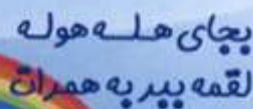 بجای هله هوله
لقمه ببر به همرات